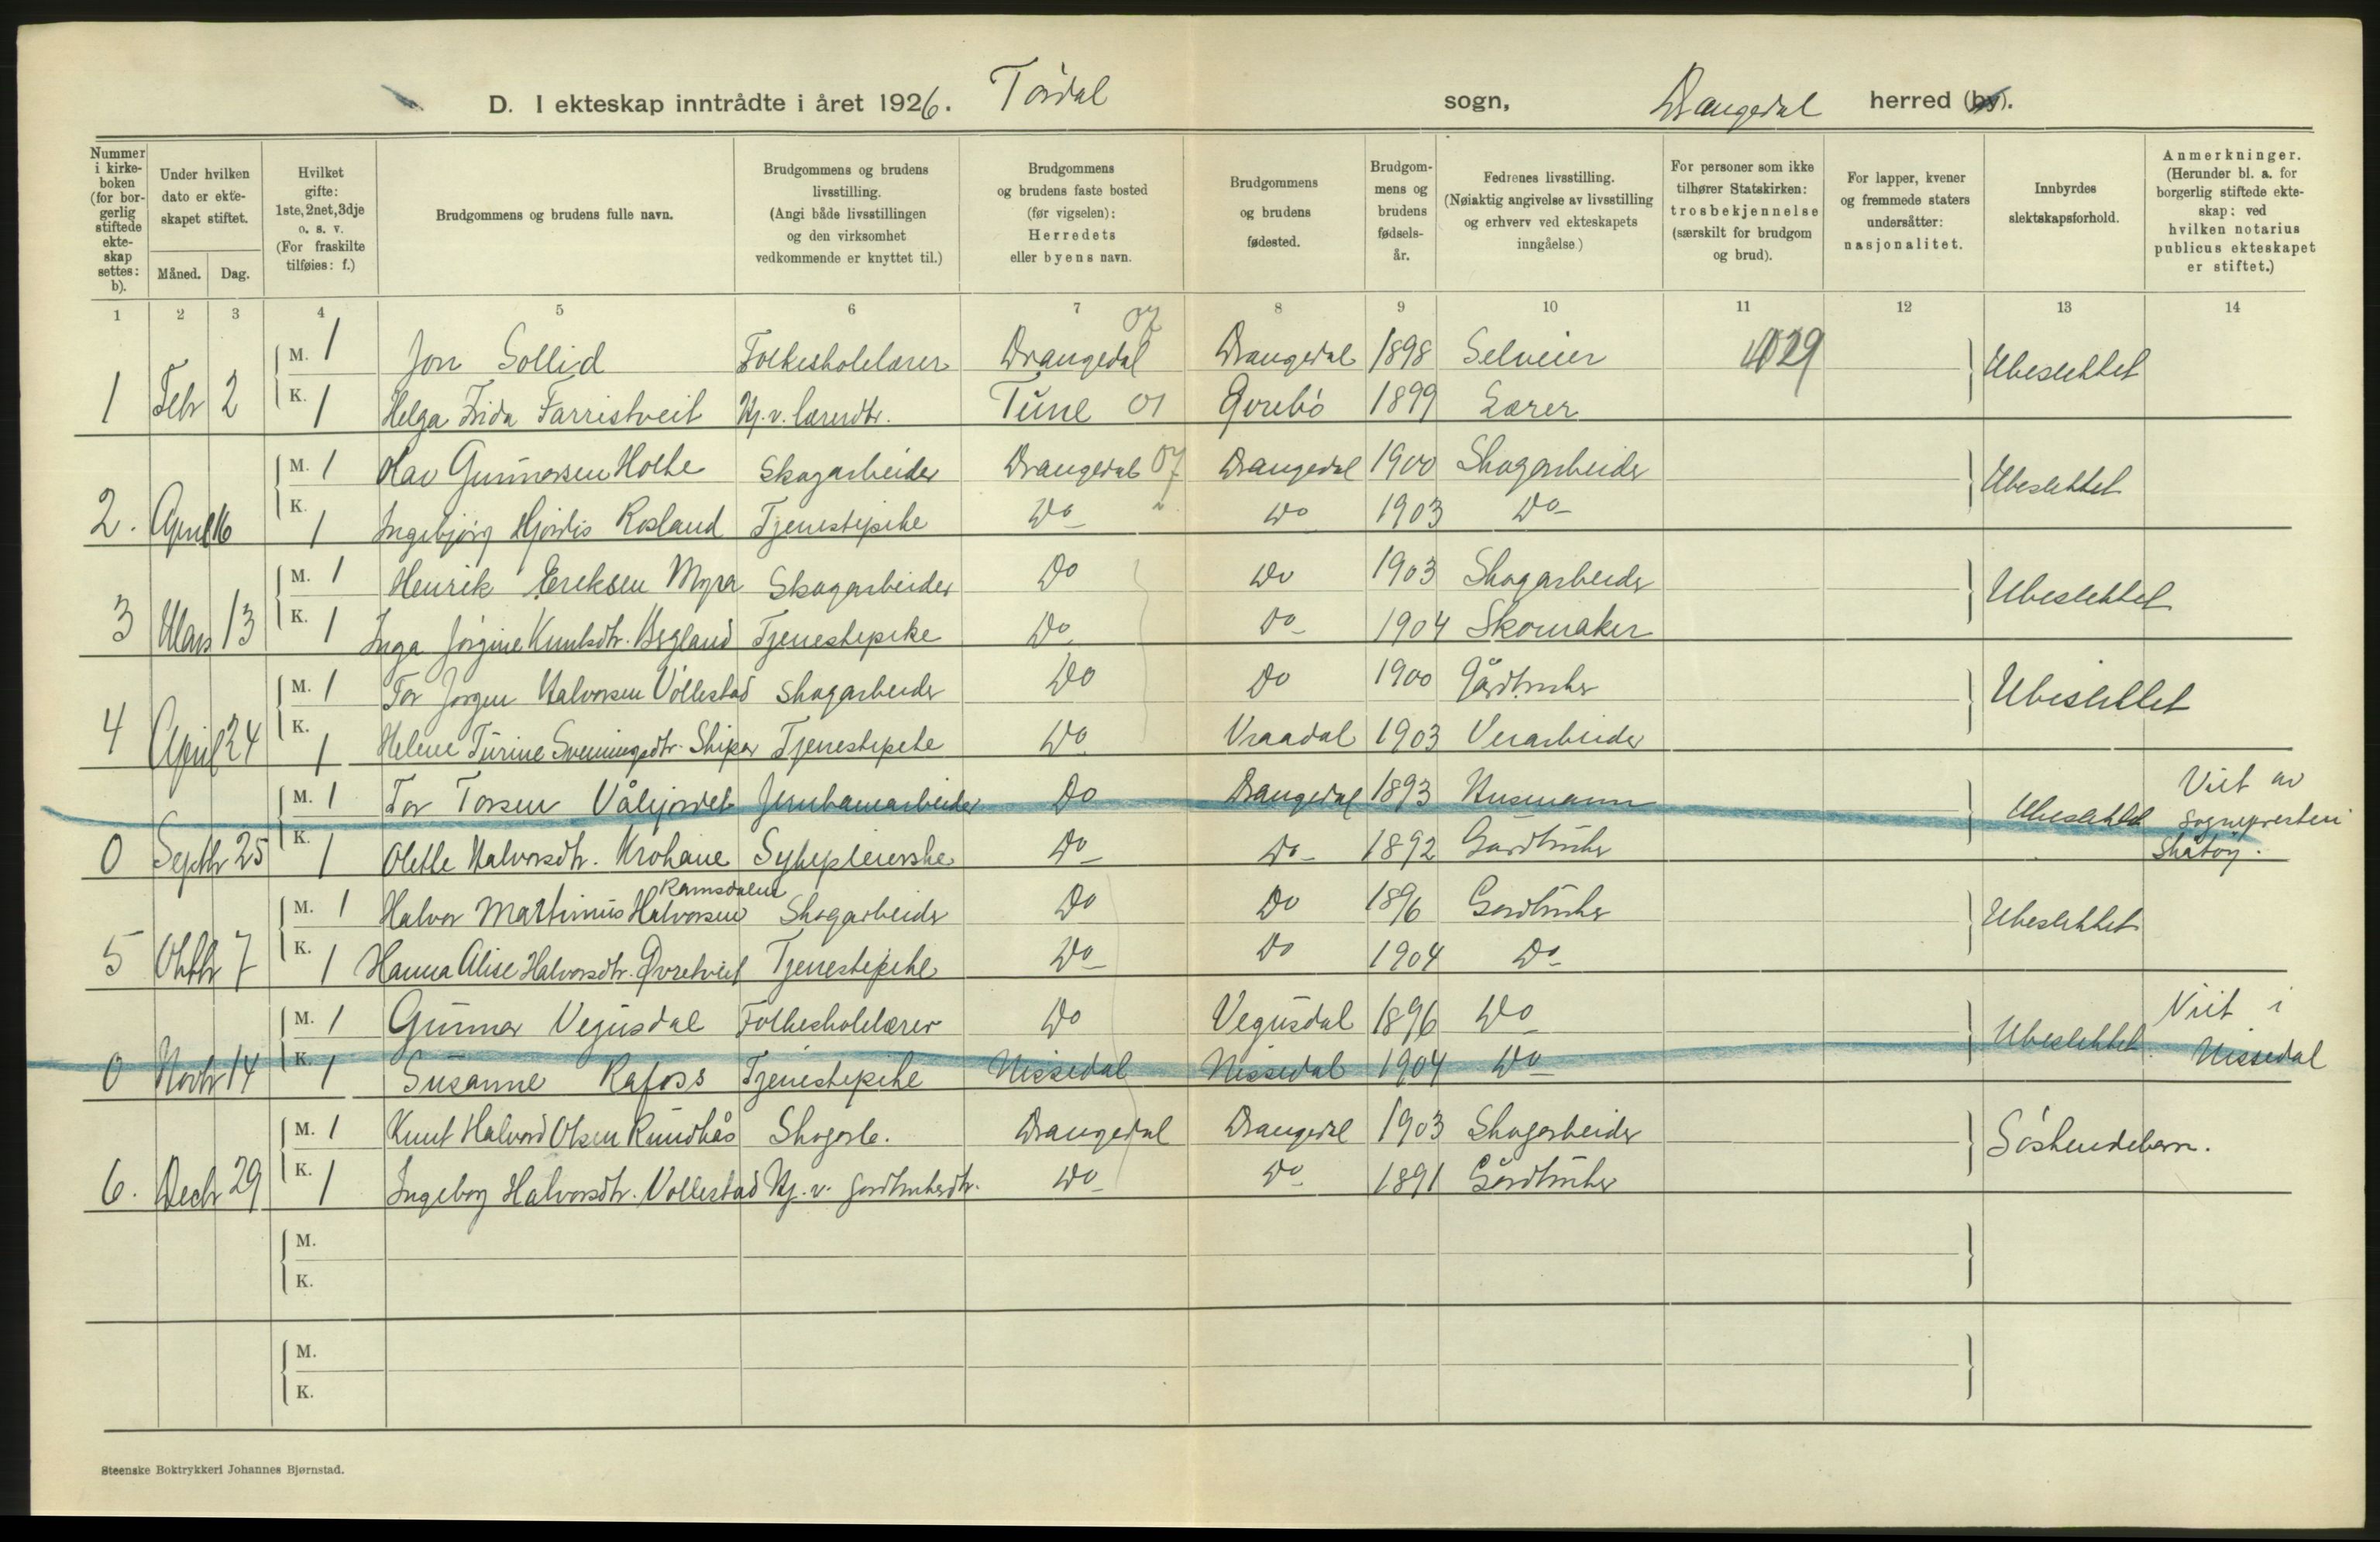 D. I ekteskap inntrådte i året 1926. Tørdal sogn, Drangedal herred (by).
Nummer i kirkeboken (for borgerlig stiftede ekteskap settes: b).
Under hvilken dato er ekteskapet stiftet.
Måned. Dag.
Hvilket gifte: 1ste, 2net, 3dje o. s. v. (For fraskilte tilføies: f.)
Brudgommens og brudens fulle navn.
Brudgommens og brudens livsstilling. (Angi både livsstillingen og den virksomhet vedkommende er knyttet til.)
Brudgommens og brudens faste bosted (før vigselen): Herredets eller byens navn.
Brudgommens og brudens fødested.
Brudgommens og brudens fødselsår.
Fedrenes livsstilling. (Nøiaktig angivelse av livsstilling og erhverv ved ekteskapets inngåelse.)
For personer som ikke tilhører Statskirken: trosbekjennelse (særskilt for brudgom og brud).
For lapper, kvener og fremmede staters undersåtter: nasjonalitet.
Innbyrdes slektskapsforhold.
Anmerkninger. (Herunder bl. a. for borgerlig stiftede ekteskap: ved hvilken notarius publicus ekteskapet er stiftet.)
1 2 3 4 5 6 7 8 9 10 11 12 13 14
M. 1 Jon Sollid Folkeskolelærer Drangedal 07 Drangedal 1898 Selveier 1029 Ubeslektet
1 Febr 2 K. 1 Helga Frida Farristveit Hj.v. lærerdtr. Tune 01 Øvrebø 1899 Lærer
M. 1 Olav Gunnarsen Holte Skogarbeider Drangedal 07 Drangedal 1900 Skogarbeider Ubeslektet
2. April 16 K. 1 Ingebjørg Hjørdis Rosland Tjenestepike Do Do 1903 Do
M. 1 Henrik Eriksen Myra Skogarbeider Do Do 1903 Skogarbeider Ubeslektet
3 Mars 13 K. 1 Inga Jørgine Knutsdtr. Bygland Tjenestepike Do Do 1904 Skomaker
M. 1 Tor Jørgen Halvorsen Vollestad Skogarbeider Do Do 1900 Gårdbruker Ubeslektet
4 April 24 K. 1 Helene Turine Sveinungsdtr. Tjenestepike Do Vraadal 1903 Veiarbeider
M. 1 Tor Torsen Vålijordet Jernbanearbeider Do Drangedal 1893 Husmann Ubeslektet Viet av sognepresten i Skåtøy.
0 Septbr 25 K. 1 Olette Halvorsdtr. Krohane Sykepleierske Do Do 1892 Gårdbruker
Ramsdalen
M. 1 Halvor Martinius Halvorsen Skogarbeider Do Do 1896 Gardbruker Ubeslektet
5 Oktbr 7 K. 1 Hanna Alise Halvorsdtr. Øvretveit Tjenestepike Do Do 1904 Do
M. 1 Gunnar Vegusdal Folkeskolelærer Do Vegusdal 1896 Do Ubeslektet. Viet i Nissedal
0 Novbr 14 K. 1 Susanne Rafoss Tjenestepike Nissedal Nissedal 1904 Do
M. 1 Knut Halvord Olsen Rundhås Skogarb. Drangedal Drangedal 1903 Skogarbeider Søskendebarn.
6. Decbr 29 K. 1 Ingeborg Halvorsdtr. Vollestad Hj. v. gardbrukerdtr. Do Do 1891 Gårdbruker
M.
K.
M.
K.
Steenske Boktrykkeri Johannes Bjørnstad.